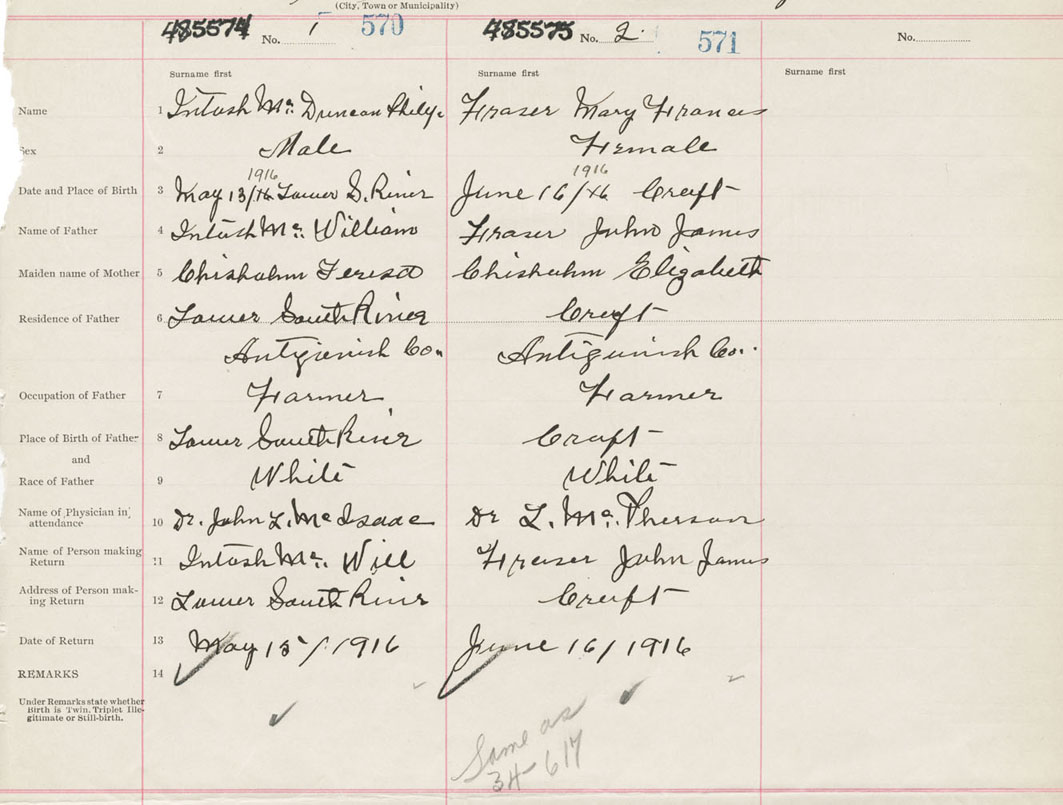 (City, Town or Municipality)
485574 No. 1 570 485575 No. 2. 571 No.
Surname first Surname first Surname first
Name 1 Intosh Mc. Duncan Fraser Mary Frances
Sex 2 Male Female
1916 1916
Date and Place of Birth 3 May 13/16 Lower S. River June 16/16 Croft
Name of Father 4 Intosh Mc. William Fraser John James
Maiden name of Mother 5 Chisholm Teresa Chisholm Elizabeth
Residence of Father 6 Lower South River Croft
Antigonish Co. Antigonish Co.
Occupation of Father 7 Farmer Farmer
Place of Birth of Father 8 Lower South River Croft
and
Race of Father 9 White White
Name of Physician in attendance 10 Dr. John L. McIsaac Dr L. Mc. Pherson
Name of Person making Return 11 Intosh Mc. Will Fraser John James
Address of Person making Return 12 Lower South River Croft
Date of Return 13 May 15/1916 June 16/1916
REMARKS 14
Under Remarks state whether
Birth is Twin, Triplet Ille-
gitimate or Still-birth.
Same as
34-617